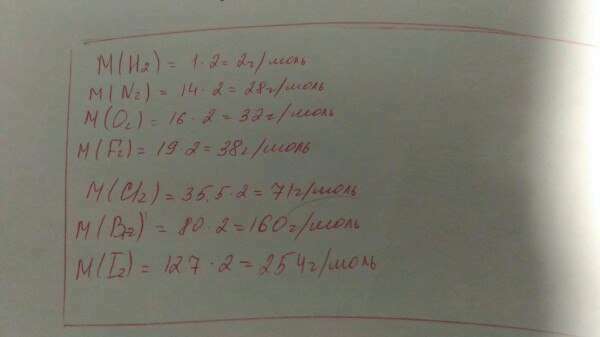 M(H₂) = 1·2=2г/моль
M(N₂) = 14·2=28г/моль
M(O₂) = 16·2=32г/моль
M(F₂) = 19·2=38г/моль
M(Cl₂) = 35,5·2=71г/моль
M(Br₂) = 80·2=160г/моль
M(I₂) = 127·2=254г/моль